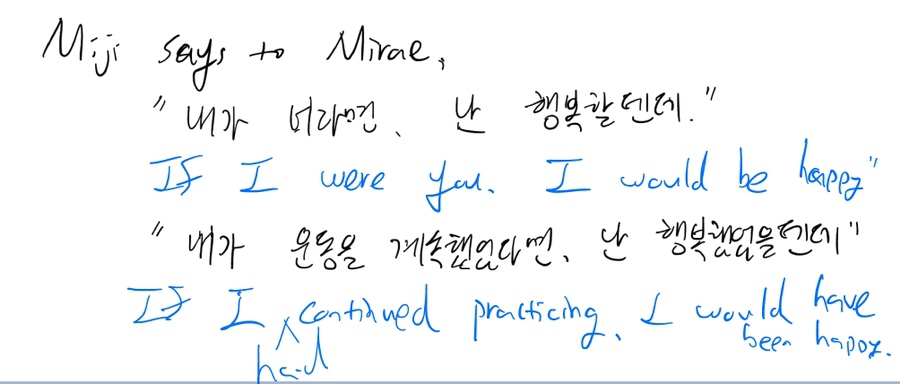 Miji says to Mirae,
"내가 너라면, 난 행복할텐데."
If I were you. I would be happy"
"내가 운동을 계속했었다면, 난 행복했었을텐데"
If I had continued practicing, I would have
been happy.